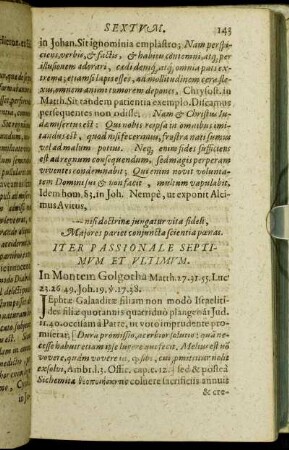 SEXTVM. 143
in Johan. Sit ignominia emplastro; Nam perspi-
cimus, verbis, & factis, & habitu contemni, atq, per
illusionem adorari, cedi denuq, atq, omnia pati ex-
trema; etiamsi lapis esses, ad mollitudinem cera fle-
xiu, omnem animi tumorem deponet, Chrysost. in
Matth. Sit tandem patientia exemplo. Discamus
persequentes non odisse: Nam & Christus lu-
dum inserviit: Qui vobis represa in omnibus imi-
tandus est, quod nisi fecerimus, frustra nati sumus
vel ad malum potius. Neq, enim fides sufficiens
est ad regnum consequendum, sed magis perperam
viventes condemnabit. Qui enim novit volunta-
tem Domini sui & non facit, multum vapulabit.
Idem hom. 83. in Joh. Nempè, ut exponit Alci-
mus Avitus,
--- nisi doctrinæ jungatur vita fidesq,
Majores pariet conjuncta scientia pœnas.
ITER PASSIONALE SEPTI-
MVM ET VLTIMVM.
In Montem Golgotha Matth. 27. 31. 55. Luc.
23. 26. 49. Joh. 19. v. 17. 38.
Jephtæ Galaaditæ filiam non modò Israeliti-
des filiæ quotannis quatriduo plangebāt Jud.
11. 40. occisam à Patre, ut voto imprudente pro-
miserat; [Dura promissio, acerbior solutio: quā ne-
cesse habuit etiam ipse lugere qui fecit. Melius est nō
vovere, quàm vovere id, quod sibi, cui promittitur nolit
exsolvi, Ambr. l. 3. Offic. cap. c. 12. ] sed & posteà
Sichemitæ coluere sacrificiis annuis
& cre-